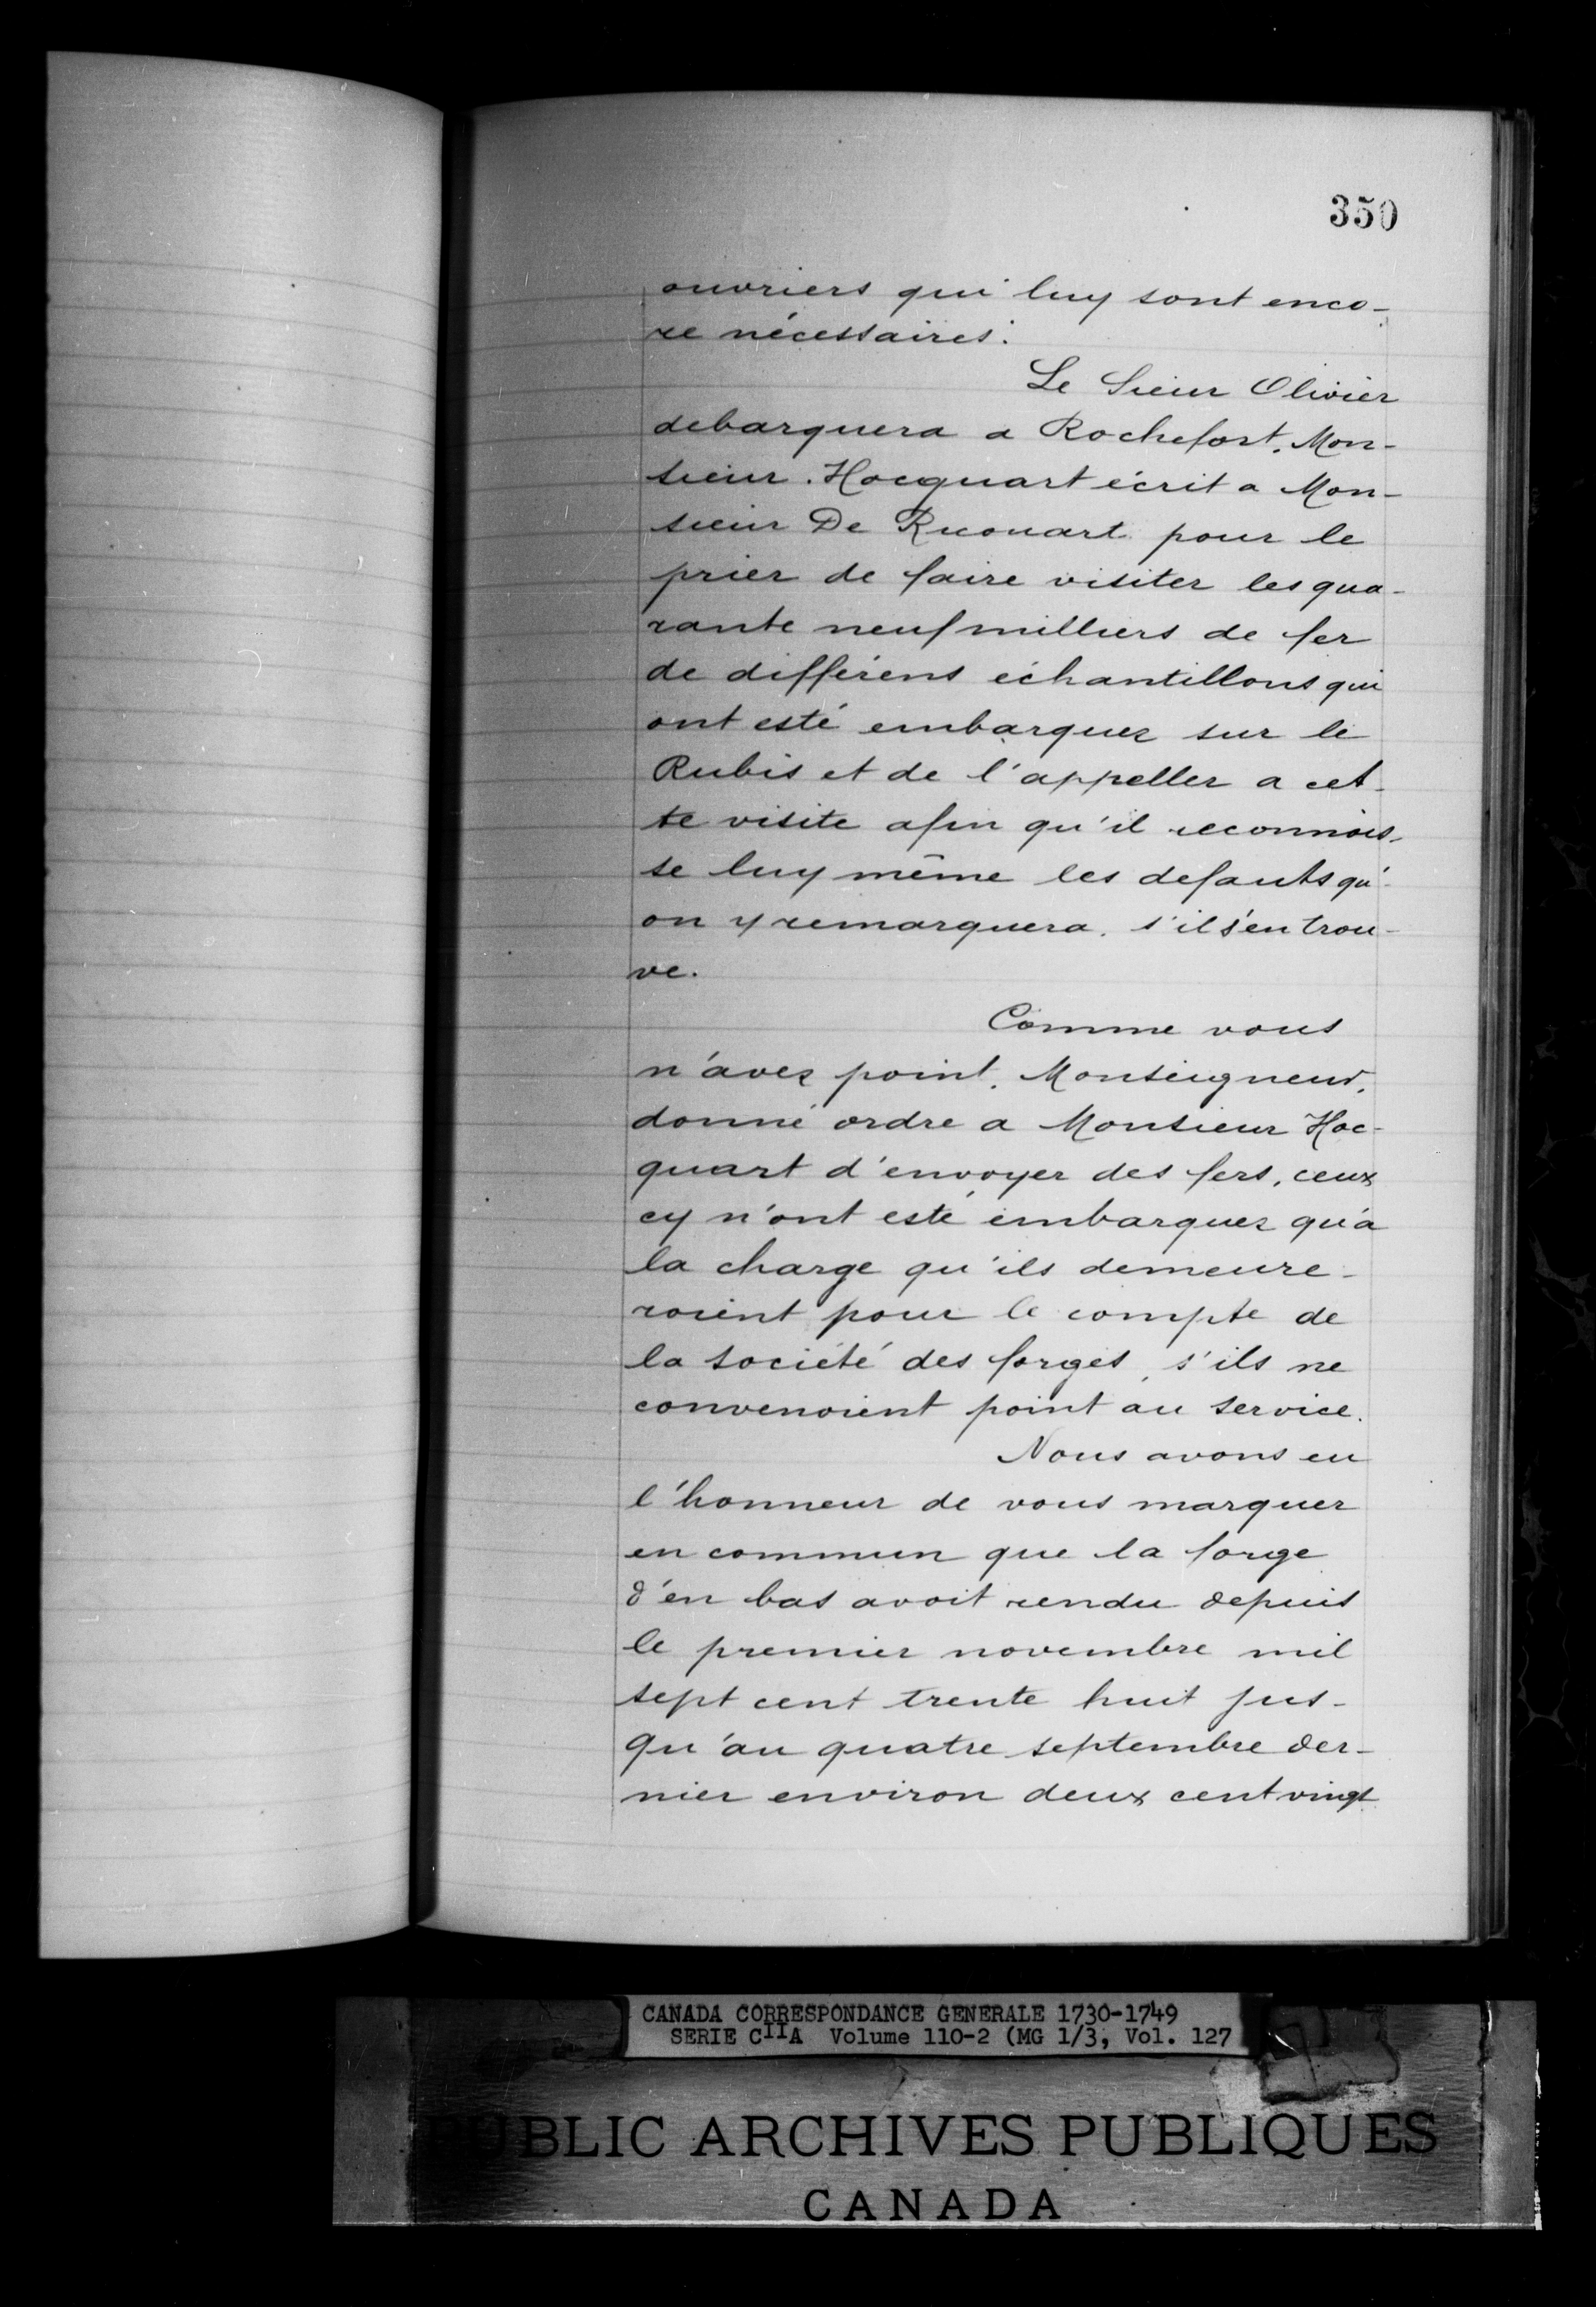 350
ouvriers qui luy sont enco-
re nécessaires.
Le Sieur Olivier
debarquera a Rochefort. Mon-
sieur. Hocquart écrit a Mon-
sieur De Ricouart pour le
prier de faire visiter les qua-
rante neuf milliers de fer
de différens échantillons qui
ont esté embarquez sur le
Rubis et de l'appeller a cet-
te visite afin qu'il reconnois-
se luy même les defauts qu'-
on y remarquera, s'il s'en trou-
ve.
Comme vous
n'avez point, Monseigneur,
donné ordre a Monsieur Hoc-
quart d'envoyer des fers, ceux
cy n'ont esté embarquez qu'a
la charge qu'ils demeure-
roient pour le compte de
la société des forges, s'ils ne
convenoient point au service.
Nous avons eu
l'honneur de vous marquer
en commun que la forge
d'en bas avoit rendu depuis
le premier novembre mil
sept cent trente huit jus-
qu'au quatre septembre der-
nier environ deux cent vingt
CANADA CORRESPONDANCE GENERALE 1730-1749
SERIE CIIA Volume 110-2 (MG 1/3, Vol. 127
PUBLIC ARCHIVES PUBLIQUES
CANADA